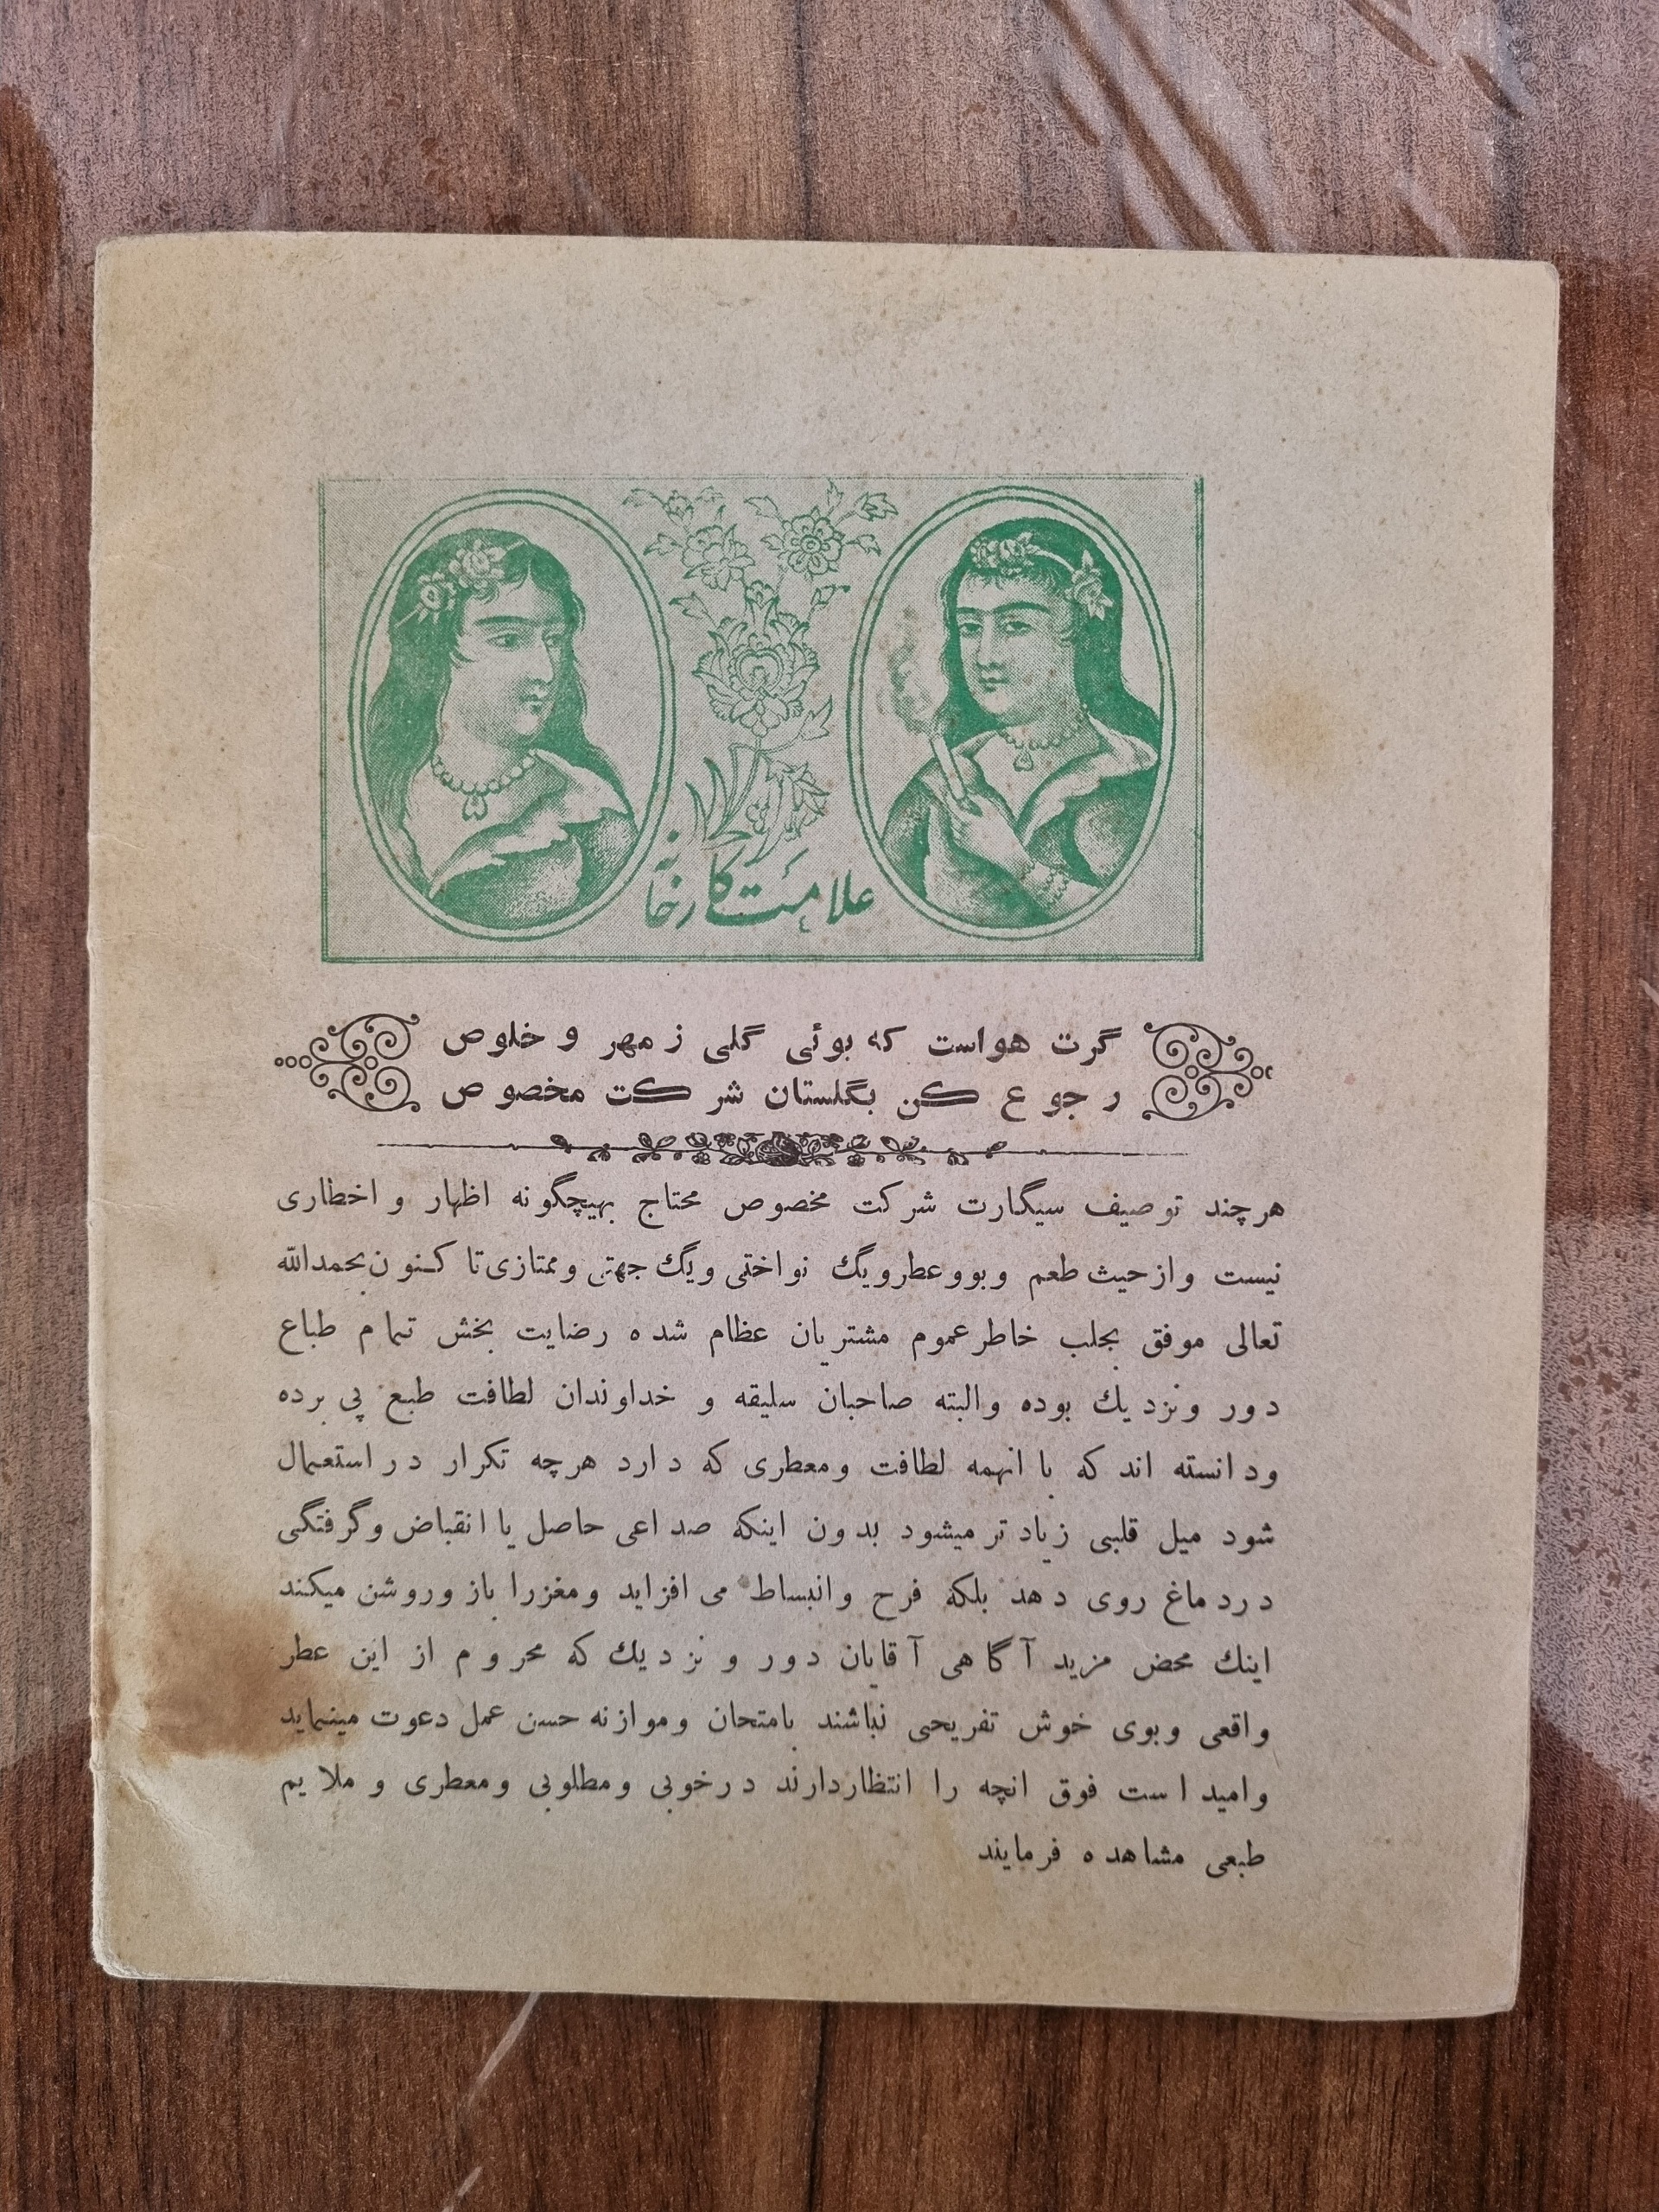 علامت کارخانه
گرت هواست که بوئی گلی ز مهر و خلوص
رجوع کن بگلستان شرکت مخصوص
هرچند توصیف سیگارت شرکت مخصوص محتاج بهیچگونه اظهار و اخطاری
نیست و از حیث طعم و بو و عطر ویک نواختی ویک جهتی وممتازی تا کنون بحمدالله
تعالی موفق بجلب خاطر عموم مشتریان عظام شده رضایت بخش تمام طباع
دور ونزدیك بوده والبته صاحبان سلیقه و خداوندان لطافت طبع پی برده
ودانسته اند که با انهمه لطافت ومعطری که دارد هرچه تکرار در استعمال
شود میل قلبی زیاد تر میشود بدون اینکه صداعی حاصل یا انقباض وگرفتگی
در دماغ روی دهد بلکه فرح وانبساط می افزاید ومغزرا باز وروشن میکند
اینك محض مزید آگاهی آقایان دور و نزدیك که محروم از این عطر
واقعی وبوی خوش تفریحی نباشند بامتحان وموازنه حسن عمل دعوت مینماید
وامید است فوق انچه را انتظاردارند درخوبی ومطلوبی ومعطری و ملایم
طبعی مشاهده فرمایند